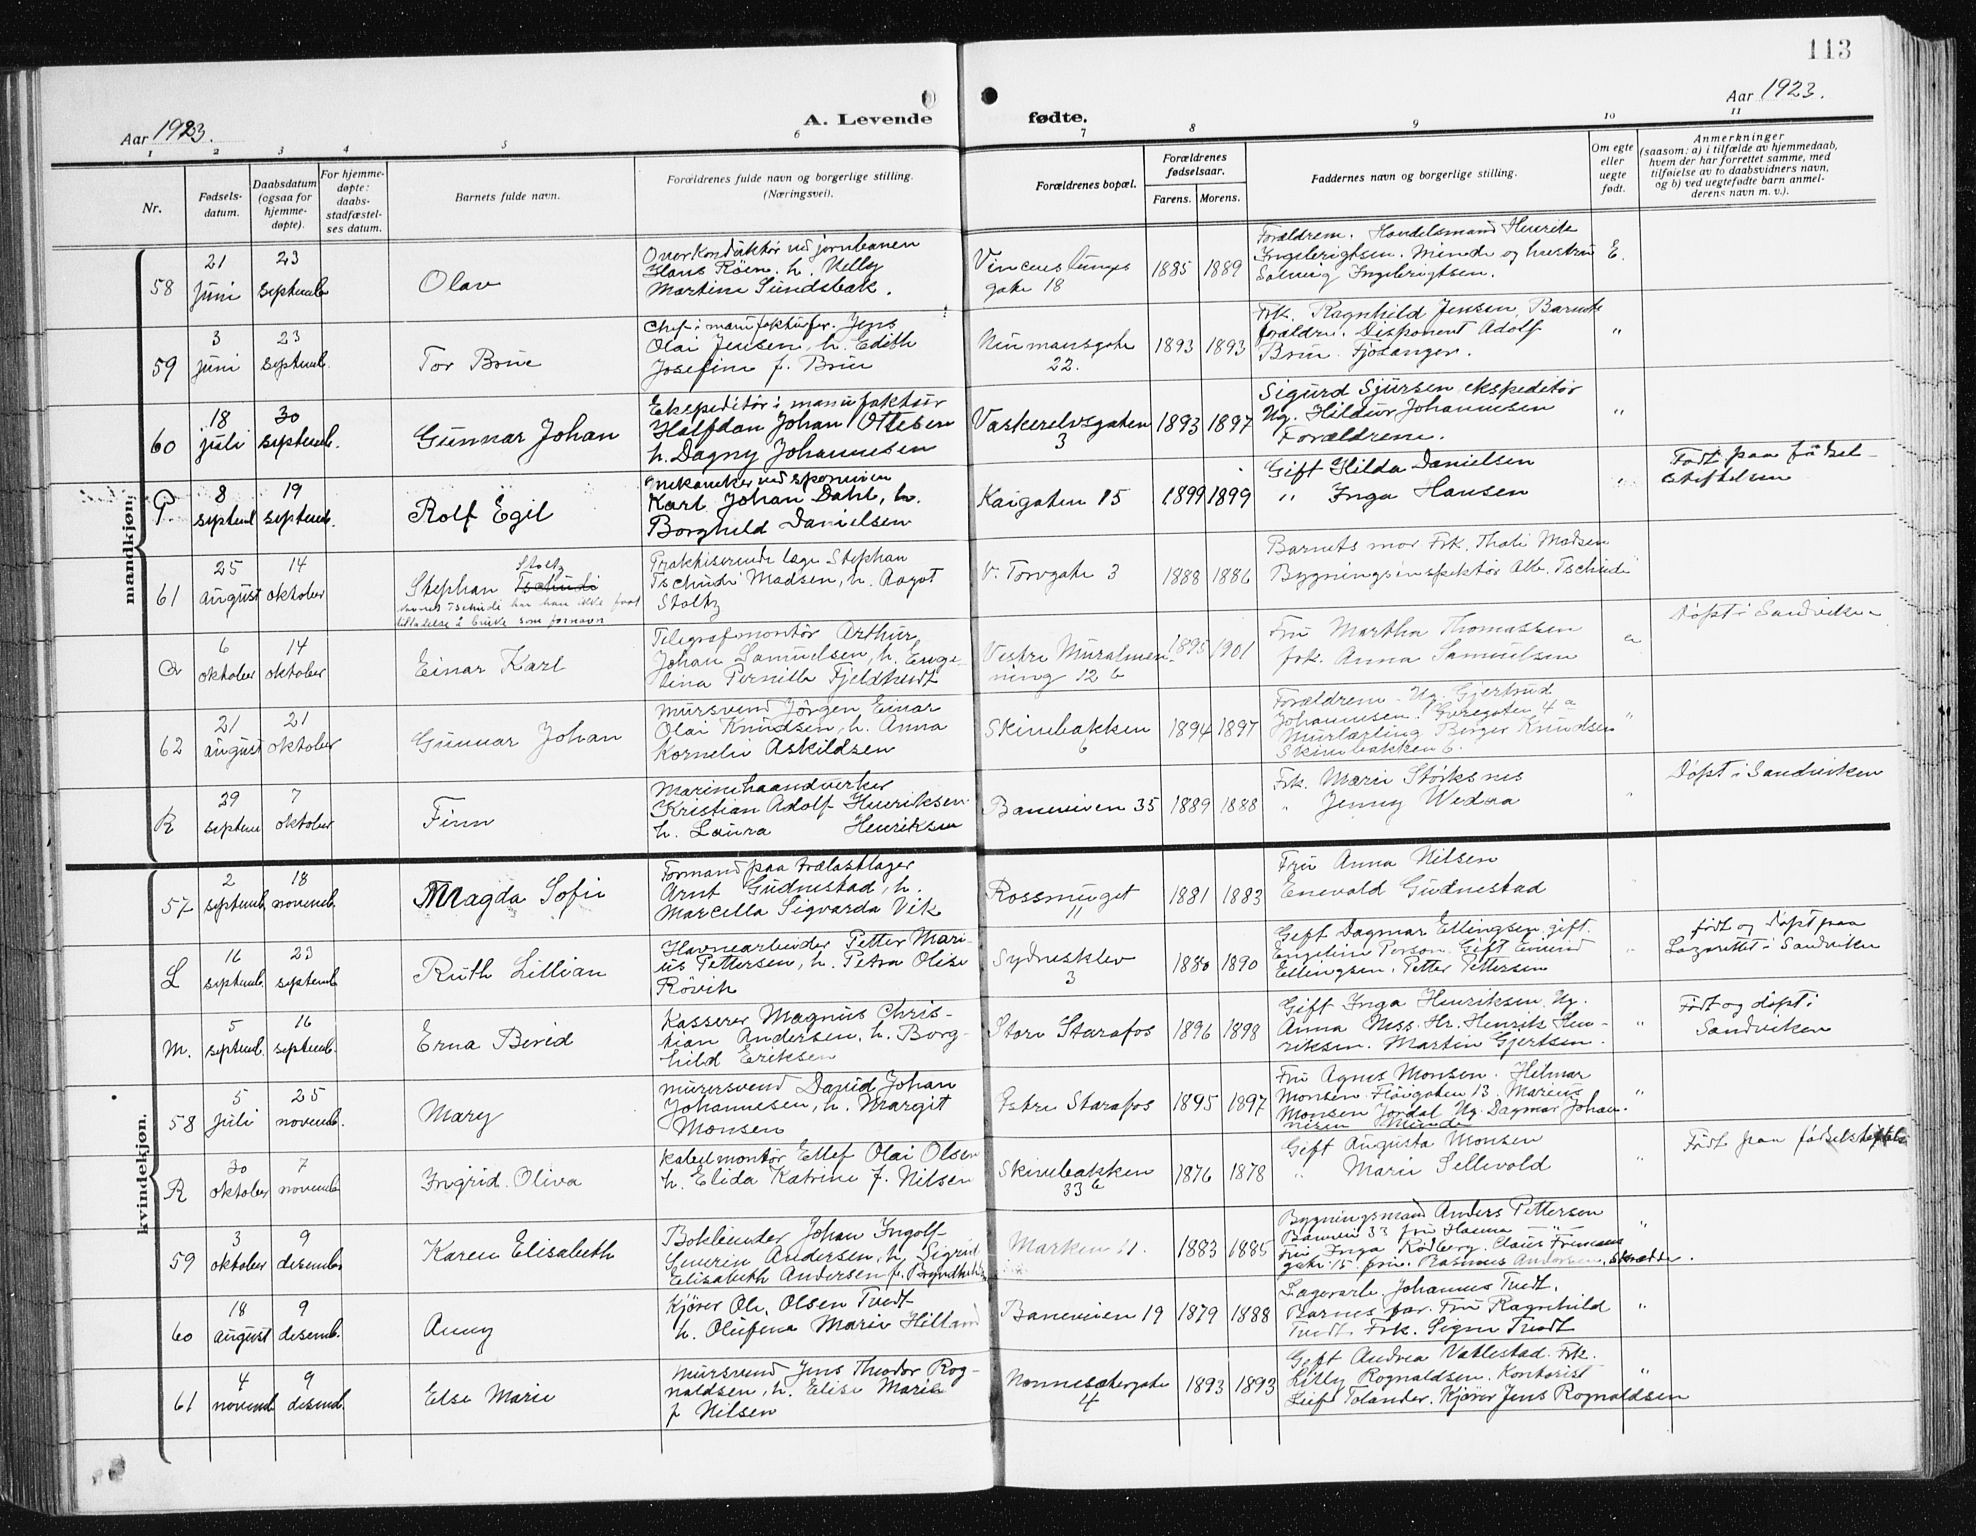 113
Aar 1923.
A. Levende fødte.
Aar 1923.
1 2 3 4 5 6 7 8 9 10 11
Nr.
Fødsels-
datum.
Daabsdatum
(ogsaa for
hjemme-
døpte).
For hjemme-
døpte:
daabs-
stadfæstel-
ses datum.
Barnets fulde navn.
Forældrenes fulde navn og borgerlige stilling.
(Næringsvei).
Forældrenes bopæl.
Forældrenes
fødselsaar.
Farens. Morens.
Faddernes navn og borgerlige stilling.
Om egte
eller
uegte
født.
Anmerkninger
(saasom: a) i tilfælde av hjemmedaab,
hvem der har forrettet samme, med
tilføielse av to daabsvidners navn,
og b) ved uegtefødte barn anmel-
derens navn m. v.).
mandkjøn.
58
21
juni
23
septemb.
Olav
Overkonduktør ved jernbanen
Hans Röen, h. Nelly
Martine Sundsbak.
Vincens Lunges
gate 18
1885 1889
Forældrene. Handelsmand Henrik
Ingebrigtsen. Minde og hustru
Solveig Ingebrigtsen.
E.
59
3
juni
23
septemb.
Tor Brun
Chef i manufakturfor. Jens
Olai Jensen, h. Edith
Josefine f. Brun
Neumansgate
22.
1893 1893
Frk. Ragnhild Jensen, Barnets
forældre. Disponent Adolf
Brun. Fjøsanger.
"
60
18
juli
30
septemb.
Gunnar Johan
Ekspeditör i manufaktur
Halfdan Johan Ottesen
h. Dagny Johannesen
Vaskerelvsgaten
3
1893 1897
Sigurd Sjursen, ekspeditör
Ug. Hildur Johannesen
Forældrene.
"
P.
8
septemb
19
septemb.
Rolf Egil
mekaniker ved sporveien
Karl Johan Dahl, h.
Borghild Danielsen
Kaigaten 15
1899 1899
Gift Hilda Danielsen
" Inga Hansen
"
Født paa fødsel-
stiftelsen
61
25
august
14
oktober
Stoltz
Stephan Tschudi
navnet Tschudi har han ikke faat
tilladelse å bruke som fornavn
Praktiserende læge Stephan
Tschudi Madsen, h. Aagot
Stoltz
V. Torvgate 3
1888 1886
Barnets mor Frk. Thali Madsen
Bygningsinspektör Alb. Tschudi
"
Q
6
oktober
14
oktober
Einar Karl
Telegrafmontör Arthur
Johan Samuelsen, h. Enge-
lina Pernille Fjeldtvedt
Vestre Muralmen-
ning 12 b
1895 1901
Fru Martha Thomassen
frk. Anna Samuelsen
"
Døpt i Sandviken
62
21
august
21
oktober
Gunnar Johan
Mursvend Jörgen Einar
Olai Knudsen, h. Anna
Kornelie Askildsen
Skivebakken
6
1894 1897
Forældrene. Ug. Gjertrud
Johannesen. 4 a
Murlærling Birger Knudsen
Skivebakken 6.
"
R
29
septem
7
oktober
Finn
Marinehaandverker
Kristian Adolf Henriksen
h. Laura Henriksen
Baneveien 35
1889 1888
Frk. Marie Störksnes
" Jenny Wedaa
"
Døpt i Sandviken
kvindekjøn.
57
2
septemb.
18
novemb.
Magda Sofie
Formand paa trælastlager
Arnt Gudmestad, h.
Marcella Sigvarda Vik
Rossmuget
11
1881 1883
Fru Anna Nilsen
Enevald Gudmestad
"
L
16
septemb.
23
septemb
Ruth Lillian
Havnearbeider Petter Mari-
us Pettersen, h. Petra Olise
Rövik
Sydnesklev
3
1880 1890
Gift Dagmar Ellingsen, gift.
Engeline Person. Gift Emund
Ellingsen. Petter Pettersen
"
født og døpt paa
Lazarettet i Sandviken
M.
5
septemb.
16
septemb.
Erna Berid
Kasserer Magnus Chris-
tian Andersen, h. Borg-
hild Eriksen
Store Starafos
1896 1898
Gift Inga Henriksen, Ug.
Anna Ness. Hr. Henrik Hen-
riksen. Martin Gjertsen.
"
Født og døpt i
Sandviken
58
5
juli
25
novemb.
Mary
murersvend David Johan
Johannesen, h. Margit
Monsen
Østre Starafos
1895 1897
Fru Agnes Monsen. Helmar
Monsen Fløigaten 13. Marius
Monsen Jordal. Ug. Dagmar Johan-
nesen Minde
"
R
30
oktober
7
novemb
Ingrid Oliva
kabelmontör Ellef Olai Olsen
h. Elida Katrine f. Nilsen
Skivebakken
33 b
1876 1878
Gift Augusta Monsen
" Marie Sellevold
"
Født paa fødselstiftels
59
3
oktober
9
desemb.
Karen Elisabeth
Bokbinder Johan Ingolf
Severin Andersen, h. Sigrid
Elisabeth Andersen f.
Marken 11.
1883 1885
Bygningsmand Anders Pettersen
Baneveien 33 fru Hanna
Fru Inga Rödberg. Claus
gate 15. fru. Rasmus Andersen, Skrædder.
"
60
18
august
9
desemb.
Anny
Kjörer Ole Olsen Tvedt
h. Olufina Marie Hilland
Baneveien 19
1879 1888
Lagerarb. Johannes Tvedt.
Barnes far. Fru Ragnhild
Tvedt. Frk. Signe Tvedt
"
61
4
novemb
9
desemb.
Else Marie
Mursvend Jens Theodor Rog-
naldsen, h. Elise Marie
f. Nilsen
Nonnesætergate
4
1893 1893
Gift Andrea Vatlestad. Frk.
Lilly Rognaldsen. Kontorist
Leif Tolander. Kjörer Jens Rognaldsen
"